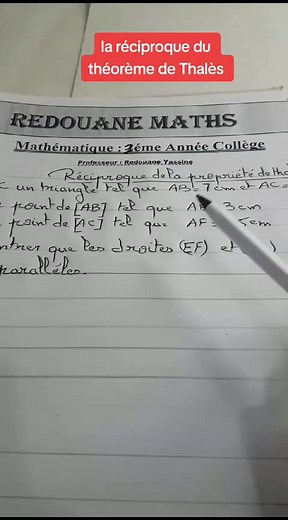 la réciproque du
théorème de Thalès
REDOUANE MATHS
Mathématique : 3éme Année Collège
Professeur : Redouane Yassine
Réciproque de la propriété de tha
C un triangle tel que AB = 7cm et AC =
point de [AB] tel que 3cm
point de [AC] tel que AF = 5cm
ntrer que les droites (EF) et
parallèles.